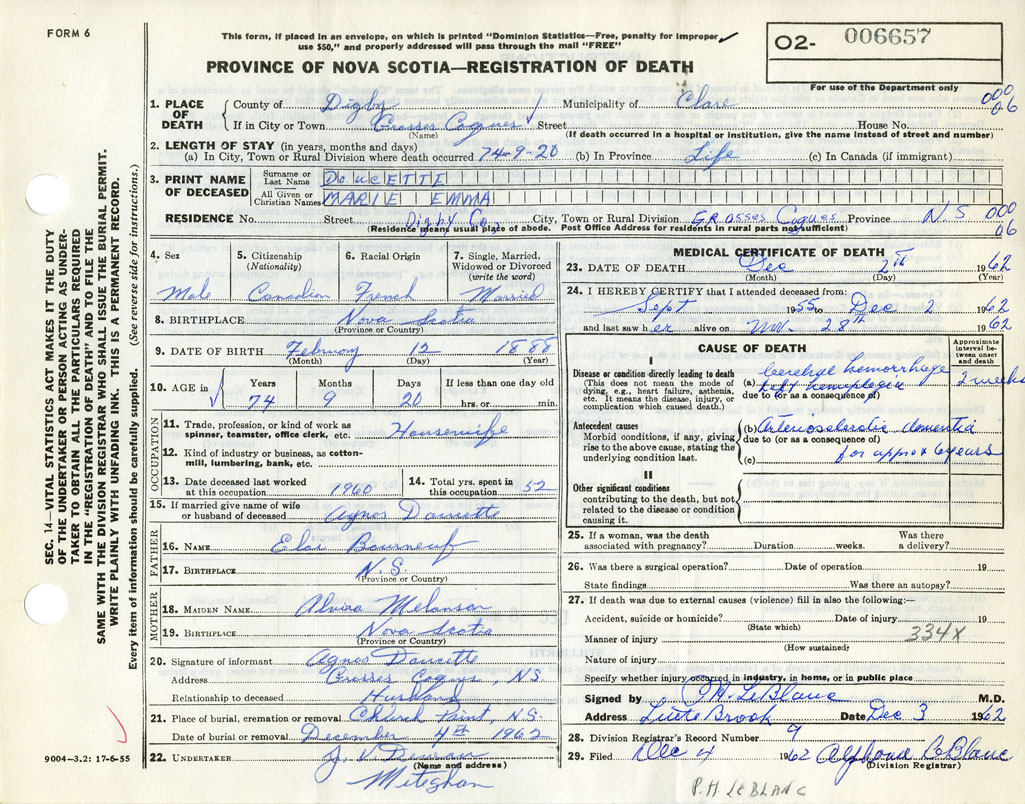 FORM 6
This form, if placed in an envelope, on which is printed "Dominion Statistics—Free, penalty for improper
use $50," and properly addressed will pass through the mail "FREE"
PROVINCE OF NOVA SCOTIA—REGISTRATION OF DEATH
02- 006657
For use of the Department only
SEC. 14—VITAL STATISTICS ACT MAKES IT THE DUTY
OF THE UNDERTAKER OR PERSON ACTING AS UNDER-
TAKER TO OBTAIN ALL THE PARTICULARS REQUIRED
IN THE "REGISTRATION OF DEATH" AND TO FILE THE
SAME WITH THE DIVISION REGISTRAR WHO SHALL ISSUE THE BURIAL PERMIT.
WRITE PLAINLY WITH UNFADING INK. THIS IS A PERMANENT RECORD.
Every item of information should be carefully supplied. (See reverse side for instructions.)
1. PLACE OF DEATH County of Digby Municipality of Clare 000
If in City or Town Grosses Coques Street House No. 06
(Name) (If death occurred in a hospital or institution, give the name instead of street and number)
2. LENGTH OF STAY (in years, months and days)
(a) In City, Town or Rural Division where death occurred 74-9-20 (b) In Province Life (c) In Canada (if immigrant)
3. PRINT NAME OF DECEASED Surname or Last Name DOUCETTE
All Given or Christian Names MARIE EMMA
RESIDENCE No. Street Digby Co. City, Town or Rural Division Grosses Coques Province N S 000
(Residence means usual place of abode. Post Office Address for residents in rural parts not sufficient) 06
4. Sex 5. Citizenship (Nationality) 6. Racial Origin 7. Single, Married, Widowed or Divorced (write the word)
Male Canadian French Married
8. BIRTHPLACE Nova Scotia
(Province or Country)
9. DATE OF BIRTH February 12 1888
(Month) (Day) (Year)
10. AGE in Years Months Days If less than one day old
74 9 20 hrs. or min.
OCCUPATION
11. Trade, profession, or kind of work as spinner, teamster, office clerk, etc. Housewife
12. Kind of industry or business, as cotton-mill, lumbering, bank, etc.
13. Date deceased last worked at this occupation 1960 14. Total yrs. spent in this occupation 52
15. If married give name of wife or husband of deceased Agnos Doucette
FATHER
16. NAME Eloi Bourneuf
17. BIRTHPLACE N.S.
(Province or Country)
MOTHER
18. MAIDEN NAME Alvira Melanson
19. BIRTHPLACE Nova Scotia
(Province or Country)
20. Signature of informant Agnos Doucette
Address Grosses Coques, N.S.
Relationship to deceased Husband
21. Place of burial, cremation or removal Church Point, N.S.
Date of burial or removal December 4th 1962
22. UNDERTAKER J. V.
(Name and address)
Meteghan
9004—3.2: 17-6-55
MEDICAL CERTIFICATE OF DEATH
23. DATE OF DEATH Dec 2th 1962
(Month) (Day) (Year)
24. I HEREBY CERTIFY that I attended deceased from:
Sept 1955 to Dec 2 1962
and last saw her alive on Nov. 28th 1962
CAUSE OF DEATH
Approximate interval between onset and death
I
Disease or condition directly leading to death
(This does not mean the mode of dying, e.g., heart failure, asthenia, etc. It means the disease, injury, or complication which caused death.)
(a) cerebral hemorrhage 2 weeks
left hemiplegia
due to (or as a consequence of)
Antecedent causes
Morbid conditions, if any, giving rise to the above cause, stating the underlying condition last.
(b) Arteriosclerotic dementia
due to (or as a consequence of)
(c) for approx 6 years
II
Other significant conditions
contributing to the death, but not related to the disease or condition causing it.
25. If a woman, was the death associated with pregnancy? Duration weeks. Was there a delivery?
26. Was there a surgical operation? Date of operation 19
State findings Was there an autopsy?
27. If death was due to external causes (violence) fill in also the following:—
Accident, suicide or homicide? Date of injury 19
(State which)
Manner of injury 334X
(How sustained)
Nature of injury
Specify whether injury occurred in industry, in home, or in public place
Signed by P.H. LeBlanc M.D.
Address Little Brook Date Dec 3 1962
28. Division Registrar's Record Number 9
29. Filed Dec 4 1962 Alphonse LeBlanc
(Division Registrar)
P.H LEBLANC